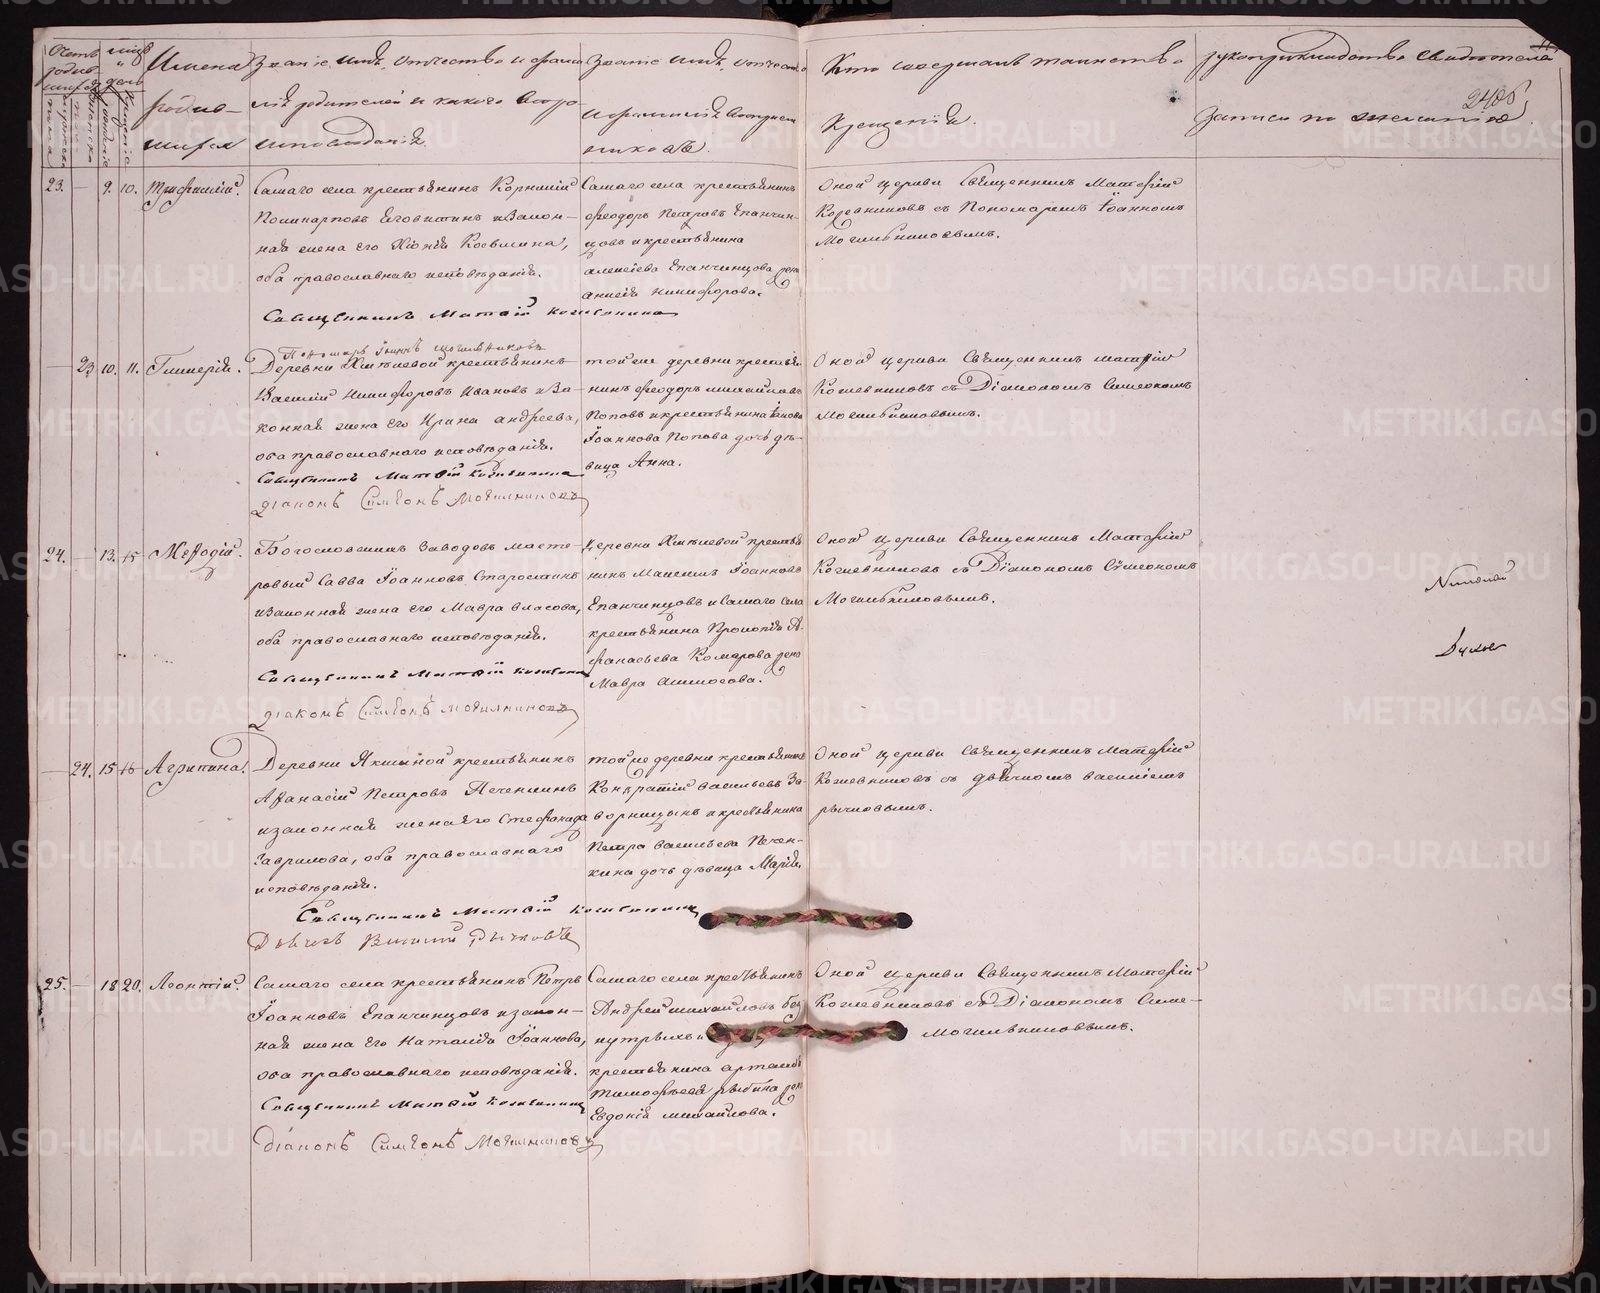 Счетъ родив-
шихся
Мѣсяцъ и день
рожденія
крещенія
Имена
родив-
шихся
Званіе, имя, отчество и фами-
лія родителей и какого вѣро-
исповѣданія.
Званіе, имя, отчество
и фамилія воспріем-
никовъ.
Кто совершалъ таинство
крещенія.
рукоприкладство свидѣтелей
записи по желанію
23. — 9. 10. Трифиллій.
Самаго села крестьянинъ Корнилій
Поликарповъ и закон-
ная жена его Хіонія Косьмина,
оба православнаго исповѣданія.
Священникъ Матфій Кожевниковъ
Пономарь Іоаннъ Могильниковъ
Самаго села крестьянинъ
Феодоръ Петровъ Епанчин-
цовъ и крестьянина
Алексіева Епанчинцова жена
Анисія Никифорова.
Оной церкви Священникъ Матфій
Кожевниковъ съ Пономаремъ Іоанномъ
Могильниковымъ.
— 23. 10. 11. Гликерія.
Деревни Хмѣлевой крестьянинъ
Василій Никифоровъ Ивановъ и за-
конная жена его Ирина Андреева,
оба православнаго исповѣданія.
Священникъ Матфій Кожевниковъ
Діаконъ Симеонъ Могильниковъ
той же деревни крестья-
нинъ Феодоръ Михайловъ
Поповъ и крестьянина Іакова
Іоаннова Попова дочь дѣ-
вица Анна.
Оной церкви Священникъ Матфій
Кожевниковъ съ Діакономъ Симеономъ
Могильниковымъ.
24. — 13. 15 Меѳодій.
Богословскихъ заводовъ масте-
ровый Савва Іоанновъ Старостинъ
и законная жена его Мавра Власова,
оба православнаго исповѣданія.
Священникъ Матфій Кожевниковъ
Діаконъ Симеонъ Могильниковъ
Деревни Хмѣлевой крестья-
нинъ Максимъ Іоанновъ
Епанчинцовъ и самаго села
крестьянина Прокопія А-
фанасьева Комарова жена
Мавра
Оной церкви Священникъ Матфій
Кожевниковъ съ Діакономъ Симеономъ
Могильниковымъ.
— 24. 15 16 Агрипина.
Деревни Якшиной крестьянинъ
Афанасій Петровъ Печенкинъ
и законная жена его Стефанида
Гаврилова, оба православнаго
исповѣданія.
Священникъ Матфій Кожевниковъ
Дьячекъ Василій Рычковъ
той же деревни крестьянинъ
Кондратій Васильевъ За-
ворницынъ и крестьянина
Петра Васильева Печен-
кина дочь дѣвица Марія.
Оной церкви Священникъ Матфій
Кожевниковъ съ дьячкомъ Василіемъ
Рычковымъ.
25. — 18 20. Леонтій.
Самаго села крестьянинъ Петръ
Іоанновъ Епанчинцовъ и закон-
ная жена его Наталія Іоаннова,
оба православнаго исповѣданія.
Священникъ Матфій Кожевниковъ
Діаконъ Симеонъ Могильниковъ
Самаго села крестьянинъ
Андрей Михайловъ
крестьянина
Тимофѣева Рыбина жена
Евдокія Михайлова.
Оной церкви Священникъ Матфій
Кожевниковъ съ Діакономъ Симе-
Могильниковымъ.
METRIKI.GASO-URAL.RU